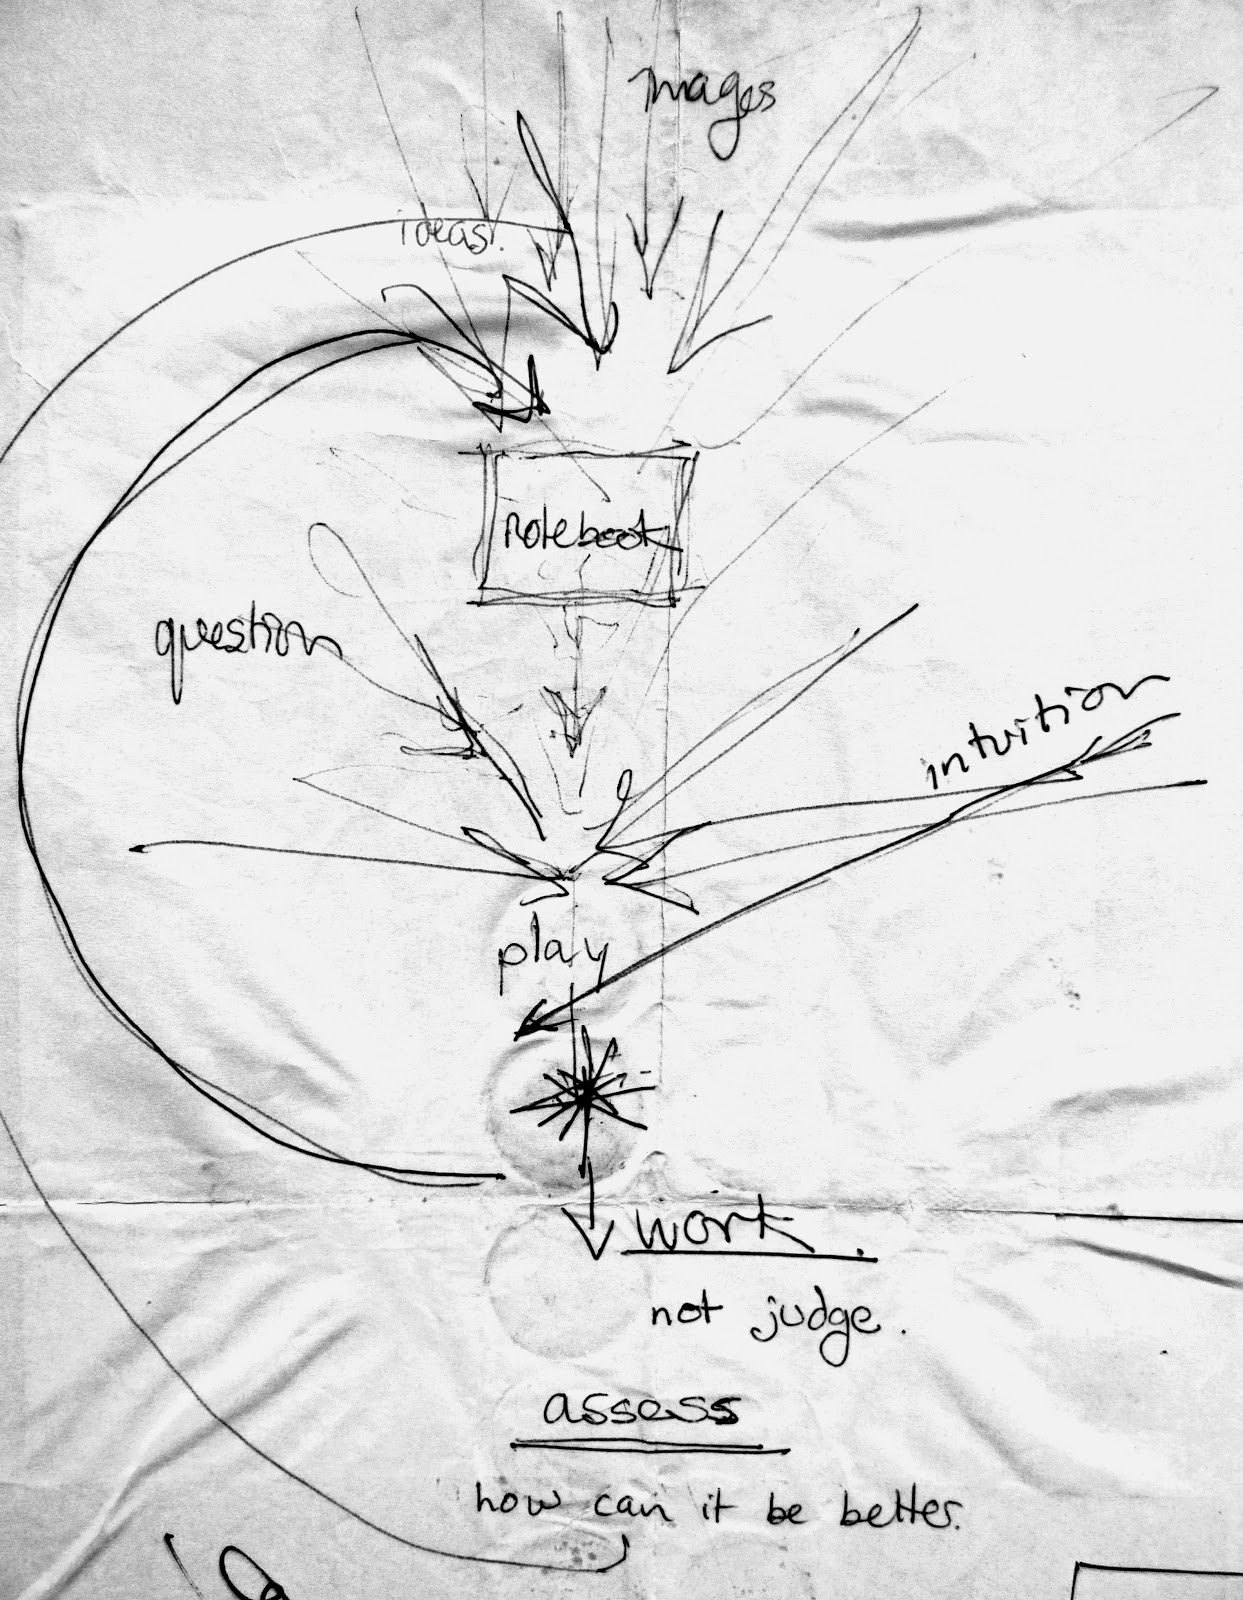 images
ideas.
notebook
question
intuition
play
work.
not judge.
assess
how can it be better.